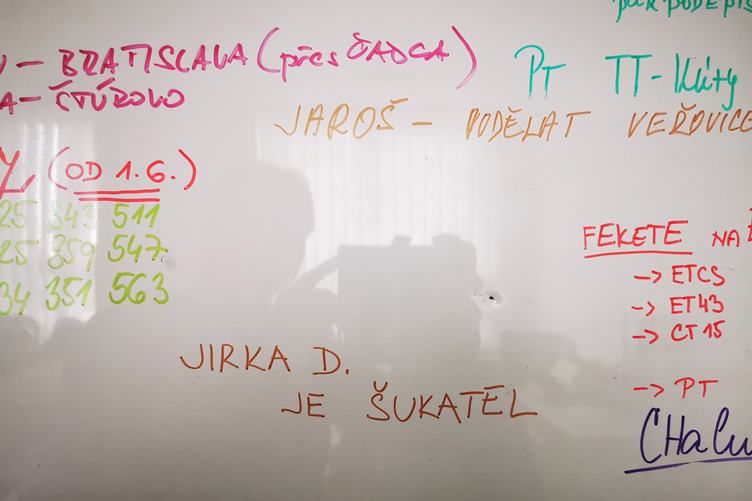 PODEPIS
– BRATISLAVA (přes ČADCA)
A – ŠTÚROVO
PT TT - Kúty
JAROŠ – PODĚLAT VEŘOVICE
(OD 1.6.)
25 343 511
25 359 547
34 351 563
FEKETE NA
-> ETCS
-> ET43
-> CT15
-> PT
JIRKA D.
JE ŠUKATĚL